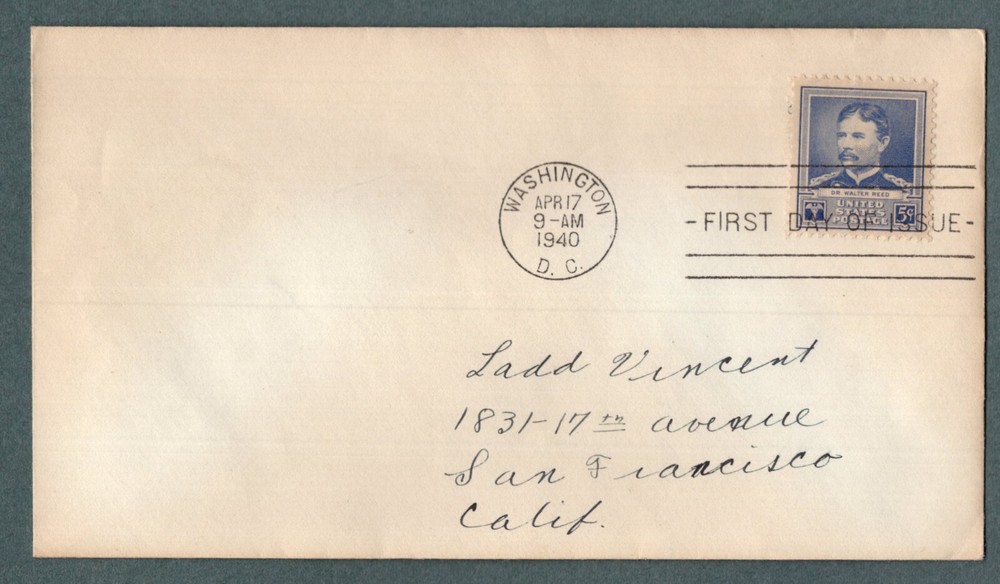 WASHINGTON
APR 17
9-AM
1940
D. C.
-FIRST DAY OF ISSUE-
DR. WALTER REED
UNITED
STATES
POSTAGE
5¢
Ladd Vincent
1831-17th avenue
San Francisco
Calif.